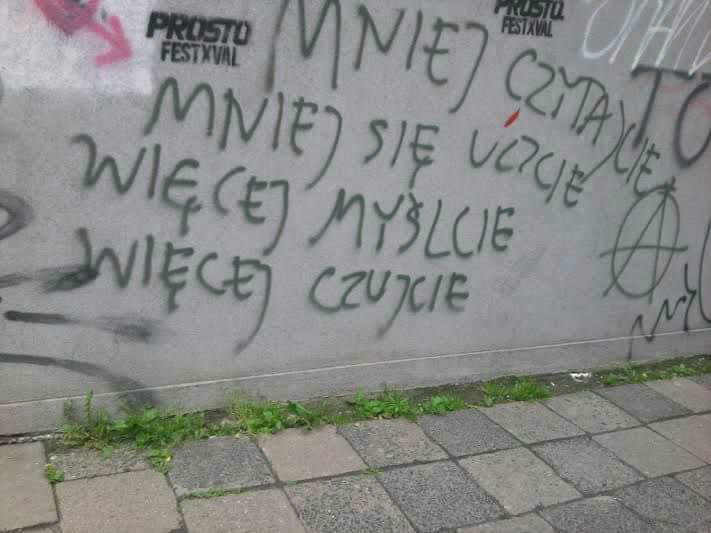 PROSTO
FESTXVAL
PROSTO.
FESTXVAL
MNIEJ CZYTAJCIE
MNIEJ SIĘ UCZCIE
WIĘCEJ MYŚLCIE
WIĘCEJ CZUJCIE